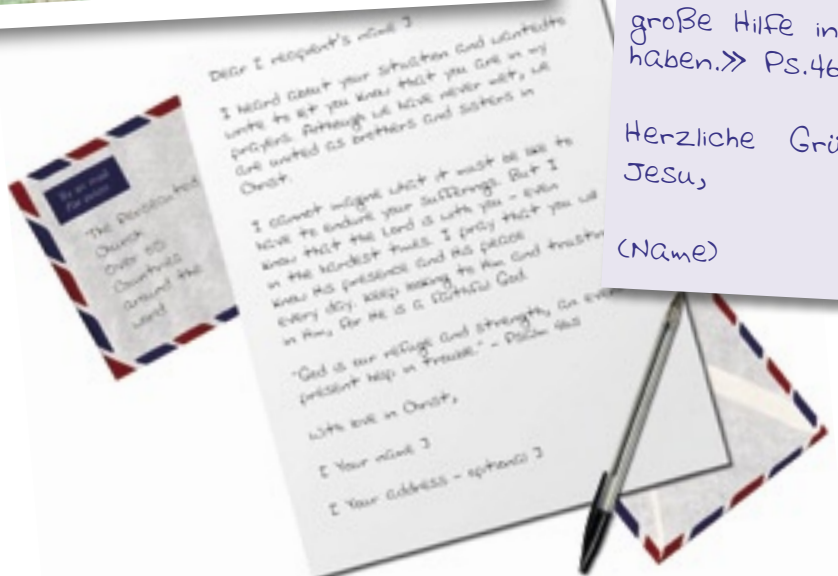 By air mail
Par avion
The Persecuted
Church
Over 60
Countries
around the
world
Dear [ recipient's name ]
I heard about your situation and wanted to
write to let you know that you are in my
prayers. Although we have never met, we
are united as brothers and sisters in
Christ.
I cannot imagine what it must be like to
have to endure your sufferings. But I
know that the Lord is with you – even
in the hardest times. I pray that you will
know His presence and His peace
every day. Keep looking to Him and trusting
in Him, for He is a faithful God.
"God is our refuge and strength, an ever
present help in trouble." – Psalm 46:1
With love in Christ,
[ Your name ]
[ Your address – optional ]
große Hilfe in
haben.>> Ps.46
Herzliche Grü
Jesu,
(Name)